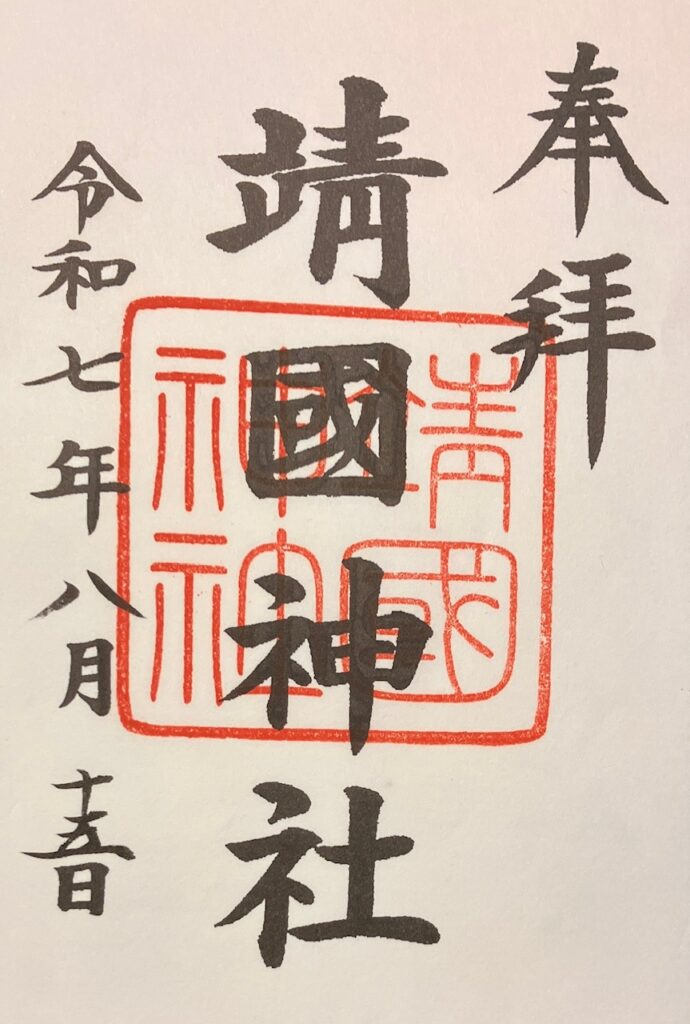 奉拝
靖國神社
靖國神社
令和七年八月十五日